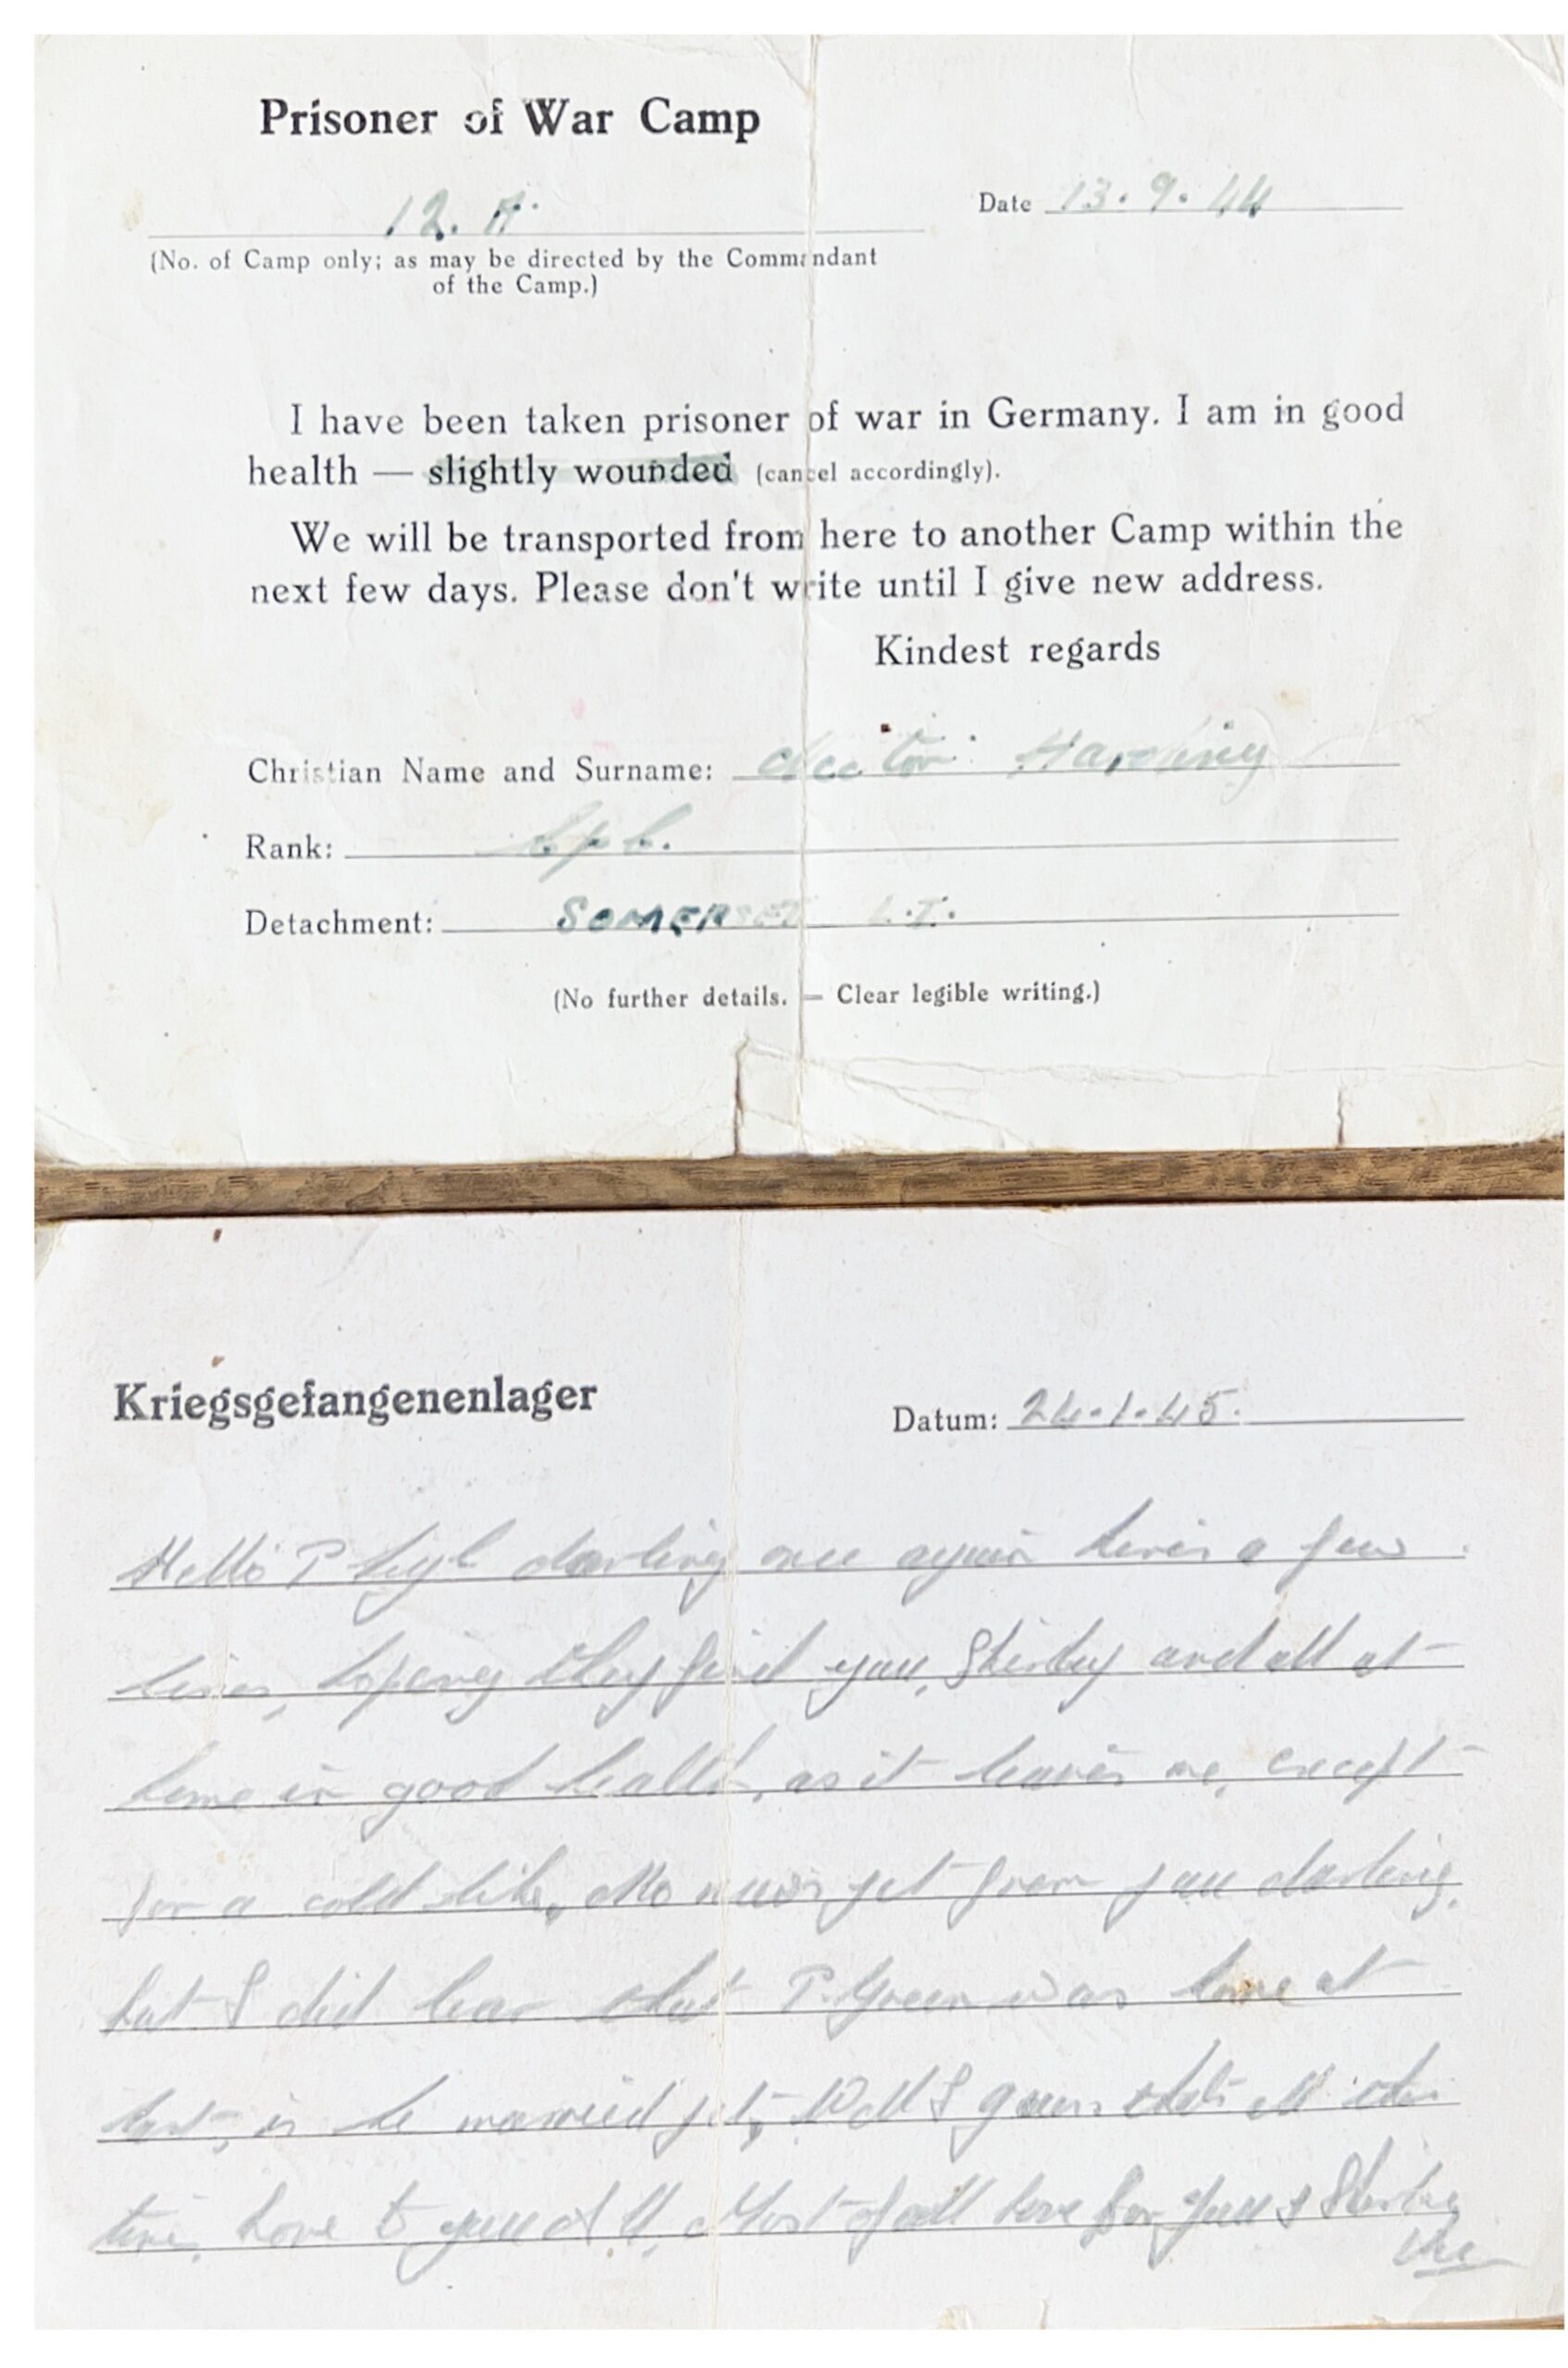 Prisoner of War Camp
12. A.
Date 13.9.44
(No. of Camp only; as may be directed by the Commandant
of the Camp.)
I have been taken prisoner of war in Germany. I am in good
health — slightly wounded (cancel accordingly).
We will be transported from here to another Camp within the
next few days. Please don't write until I give new address.
Kindest regards
Christian Name and Surname: Harding
Rank: Cpl.
Detachment: SOMERSET L.I.
(No further details. — Clear legible writing.)
Kriegsgefangenenlager
Datum: 24.1.45.
Hello Phyl darling once again here's a few
lines, hoping they find you, Shirley and all at
home in good health, as it leaves me, except
for a cold like, No news yet from you darling,
but I did hear that P. Green was home at
last, is he married yet, Well I guess that's all this
time, Love to you all, Most of all love for you & Shirley
Vic